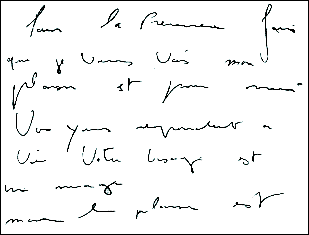 Pour la Premiere fois
que je vous vois mon
plaisir est pour moi
Vos yeux repondent a
Votre visage est
un
le plaisir est